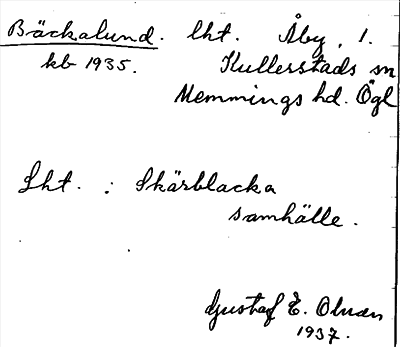 Bäckalund. lht. Åby, 1.
kb 1935. Kullerstads sn
Memmings hd. Ögl
Lht. : Skärblacka
samhälle.
Gustaf E. Olman
1937.